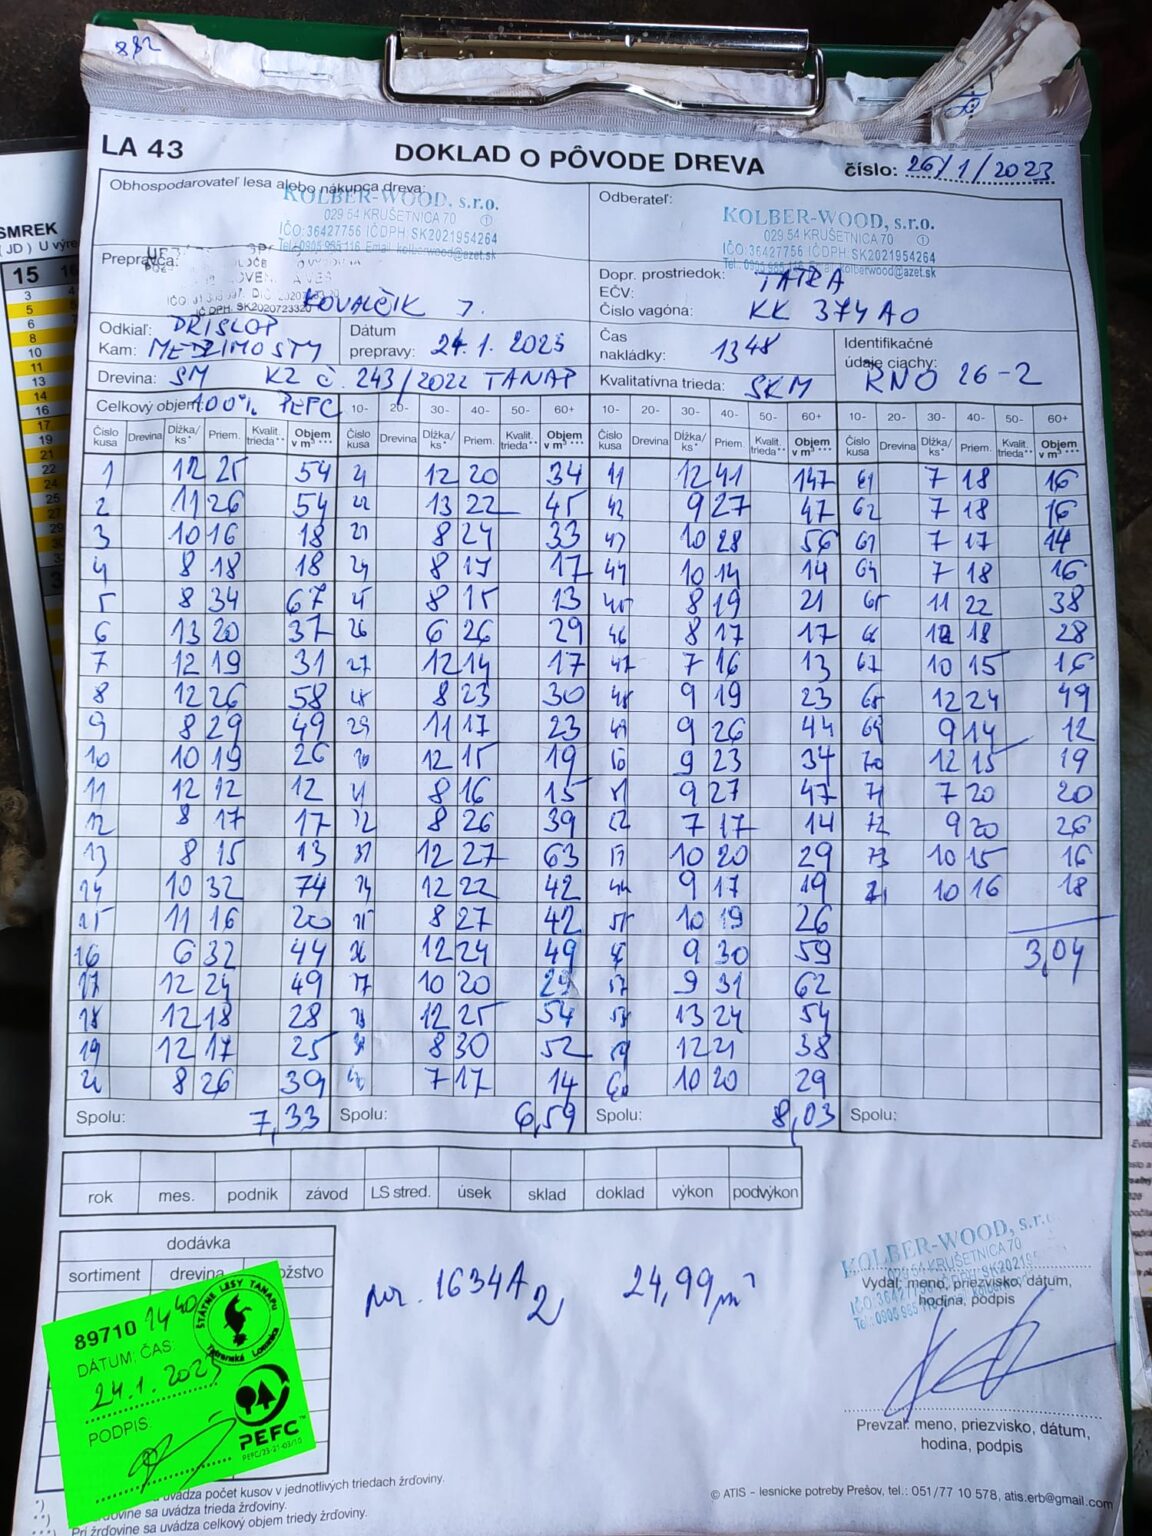 882
LA 43
DOKLAD O PÔVODE DREVA
číslo: 26/1/2023
Obhospodarovateľ lesa alebo nákupca dreva:
KOLBER-WOOD, s.r.o.
029 54 KRUŠETNICA 70 ①
IČO: 36427756 IČDPH: SK2021954264
Tel.: 0905 985 116 Email: kolberwood@azet.sk
Odberateľ:
KOLBER-WOOD, s.r.o.
029 54 KRUŠETNICA 70 ①
IČO: 36427756 IČDPH: SK2021954264
kolberwood@azet.sk
Prepravca:
IČ DPH: SK2020723320
KOVALČIK J.
Dopr. prostriedok: TATRA
EČV:
Číslo vagóna: KK 374AO
Odkiaľ: PRISLOP
Kam: MEDZIMOSTY
Dátum
prepravy: 24.1.2023
Čas
nakládky: 13 48
Identifikačné
údaje ciachy:
RNO 26-2
Drevina: SM KZ č. 243/2022 TANAP
Kvalitatívna trieda: SKM
Celkový objem 100% PEFC
10- 20- 30- 40- 50- 60+
10- 20- 30- 40- 50- 60+
10- 20- 30- 40- 50- 60+
Číslo kusa Drevina Dĺžka/ ks* Priem. Kvalit. trieda** Objem v m³ ***
Číslo kusa Drevina Dĺžka/ ks* Priem. Kvalit. trieda** Objem v m³ ***
Číslo kusa Drevina Dĺžka/ ks* Priem. Kvalit. trieda** Objem v m³ ***
Číslo kusa Drevina Dĺžka/ ks* Priem. Kvalit. trieda** Objem v m³ ***
1 12 25 54 21 12 20 34 41 12 41 147 61 7 18 16
2 11 26 54 22 13 22 45 42 9 27 47 62 7 18 16
3 10 16 18 23 8 24 33 43 10 28 56 63 7 17 14
4 8 18 18 24 8 17 17 44 10 14 14 64 7 18 16
5 8 34 67 25 8 15 13 45 8 19 21 65 11 22 38
6 13 20 37 26 6 26 29 46 8 17 17 66 12 18 28
7 12 19 31 27 12 14 17 47 7 16 13 67 10 15 16
8 12 26 58 28 8 23 30 48 9 19 23 68 12 24 49
9 8 29 49 29 11 17 23 49 9 26 44 69 9 14 12
10 10 19 26 30 12 15 19 50 9 23 34 70 12 15 19
11 12 12 12 31 8 16 15 51 9 27 47 71 7 20 20
12 8 17 17 32 8 26 39 52 7 17 14 72 9 20 26
13 8 15 13 33 12 27 63 53 10 20 29 73 10 15 16
14 10 32 74 34 12 22 42 9 17 19 10 16 18
15 11 16 20 35 8 27 42 55 10 19 26
16 6 32 44 36 12 24 49 56 9 30 59 3,04
17 12 24 49 37 10 20 29 57 9 31 62
18 12 18 28 38 12 25 54 58 13 24 54
19 12 17 25 39 8 30 52 59 12 21 38
20 8 26 39 40 7 17 14 60 10 20 29
Spolu: 7,33 Spolu: 6,59 Spolu: 8,03 Spolu:
rok mes. podnik závod LS stred. úsek sklad doklad výkon podvýkon
dodávka
sortiment drevina
por. 1634A2 24,99 m³
KOLBER-WOOD, s.r.o.
Vydal: meno, priezvisko, dátum,
hodina, podpis
Prevzal: meno, priezvisko, dátum,
hodina, podpis
89710 14 40
DÁTUM, ČAS
24.1.2023
PODPIS
ŠTÁTNE LESY TANAPU
Tatranská Lomnica
PEFC™
PEFC/23-21-03/10
uvádza počet kusov v jednotlivých triedach žrďoviny.
sa uvádza trieda žrďoviny.
Pri žrďovine sa uvádza celkový objem triedy žrďoviny.
© ATIS – lesnícke potreby Prešov, tel.: 051/77 10 578, atis.erb@gmail.com
SMREK
15